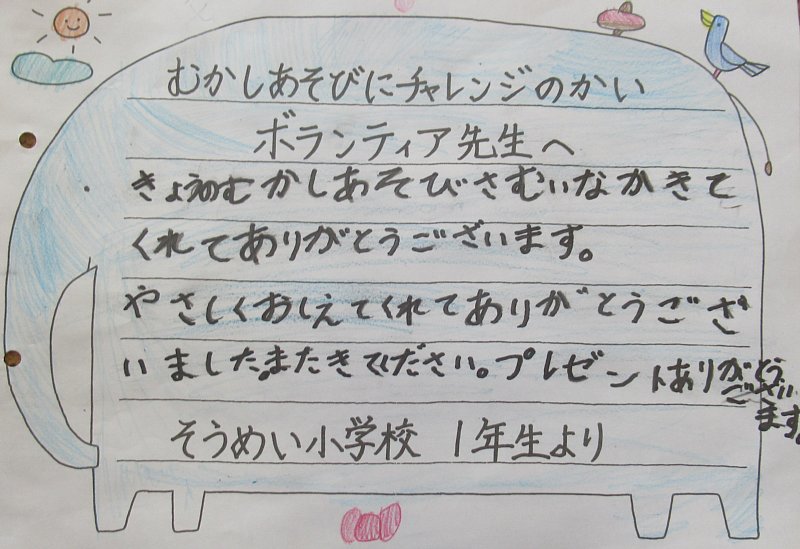 むかしあそびにチャレンジのかい
ボランティア先生へ
きょうのむかしあそびさむいなかきて
くれてありがとうございます。
やさしくおしえてくれてありがとうござ
いました。またきてください。プレゼントありがとう
ございます。
そうめい小学校 1年生より